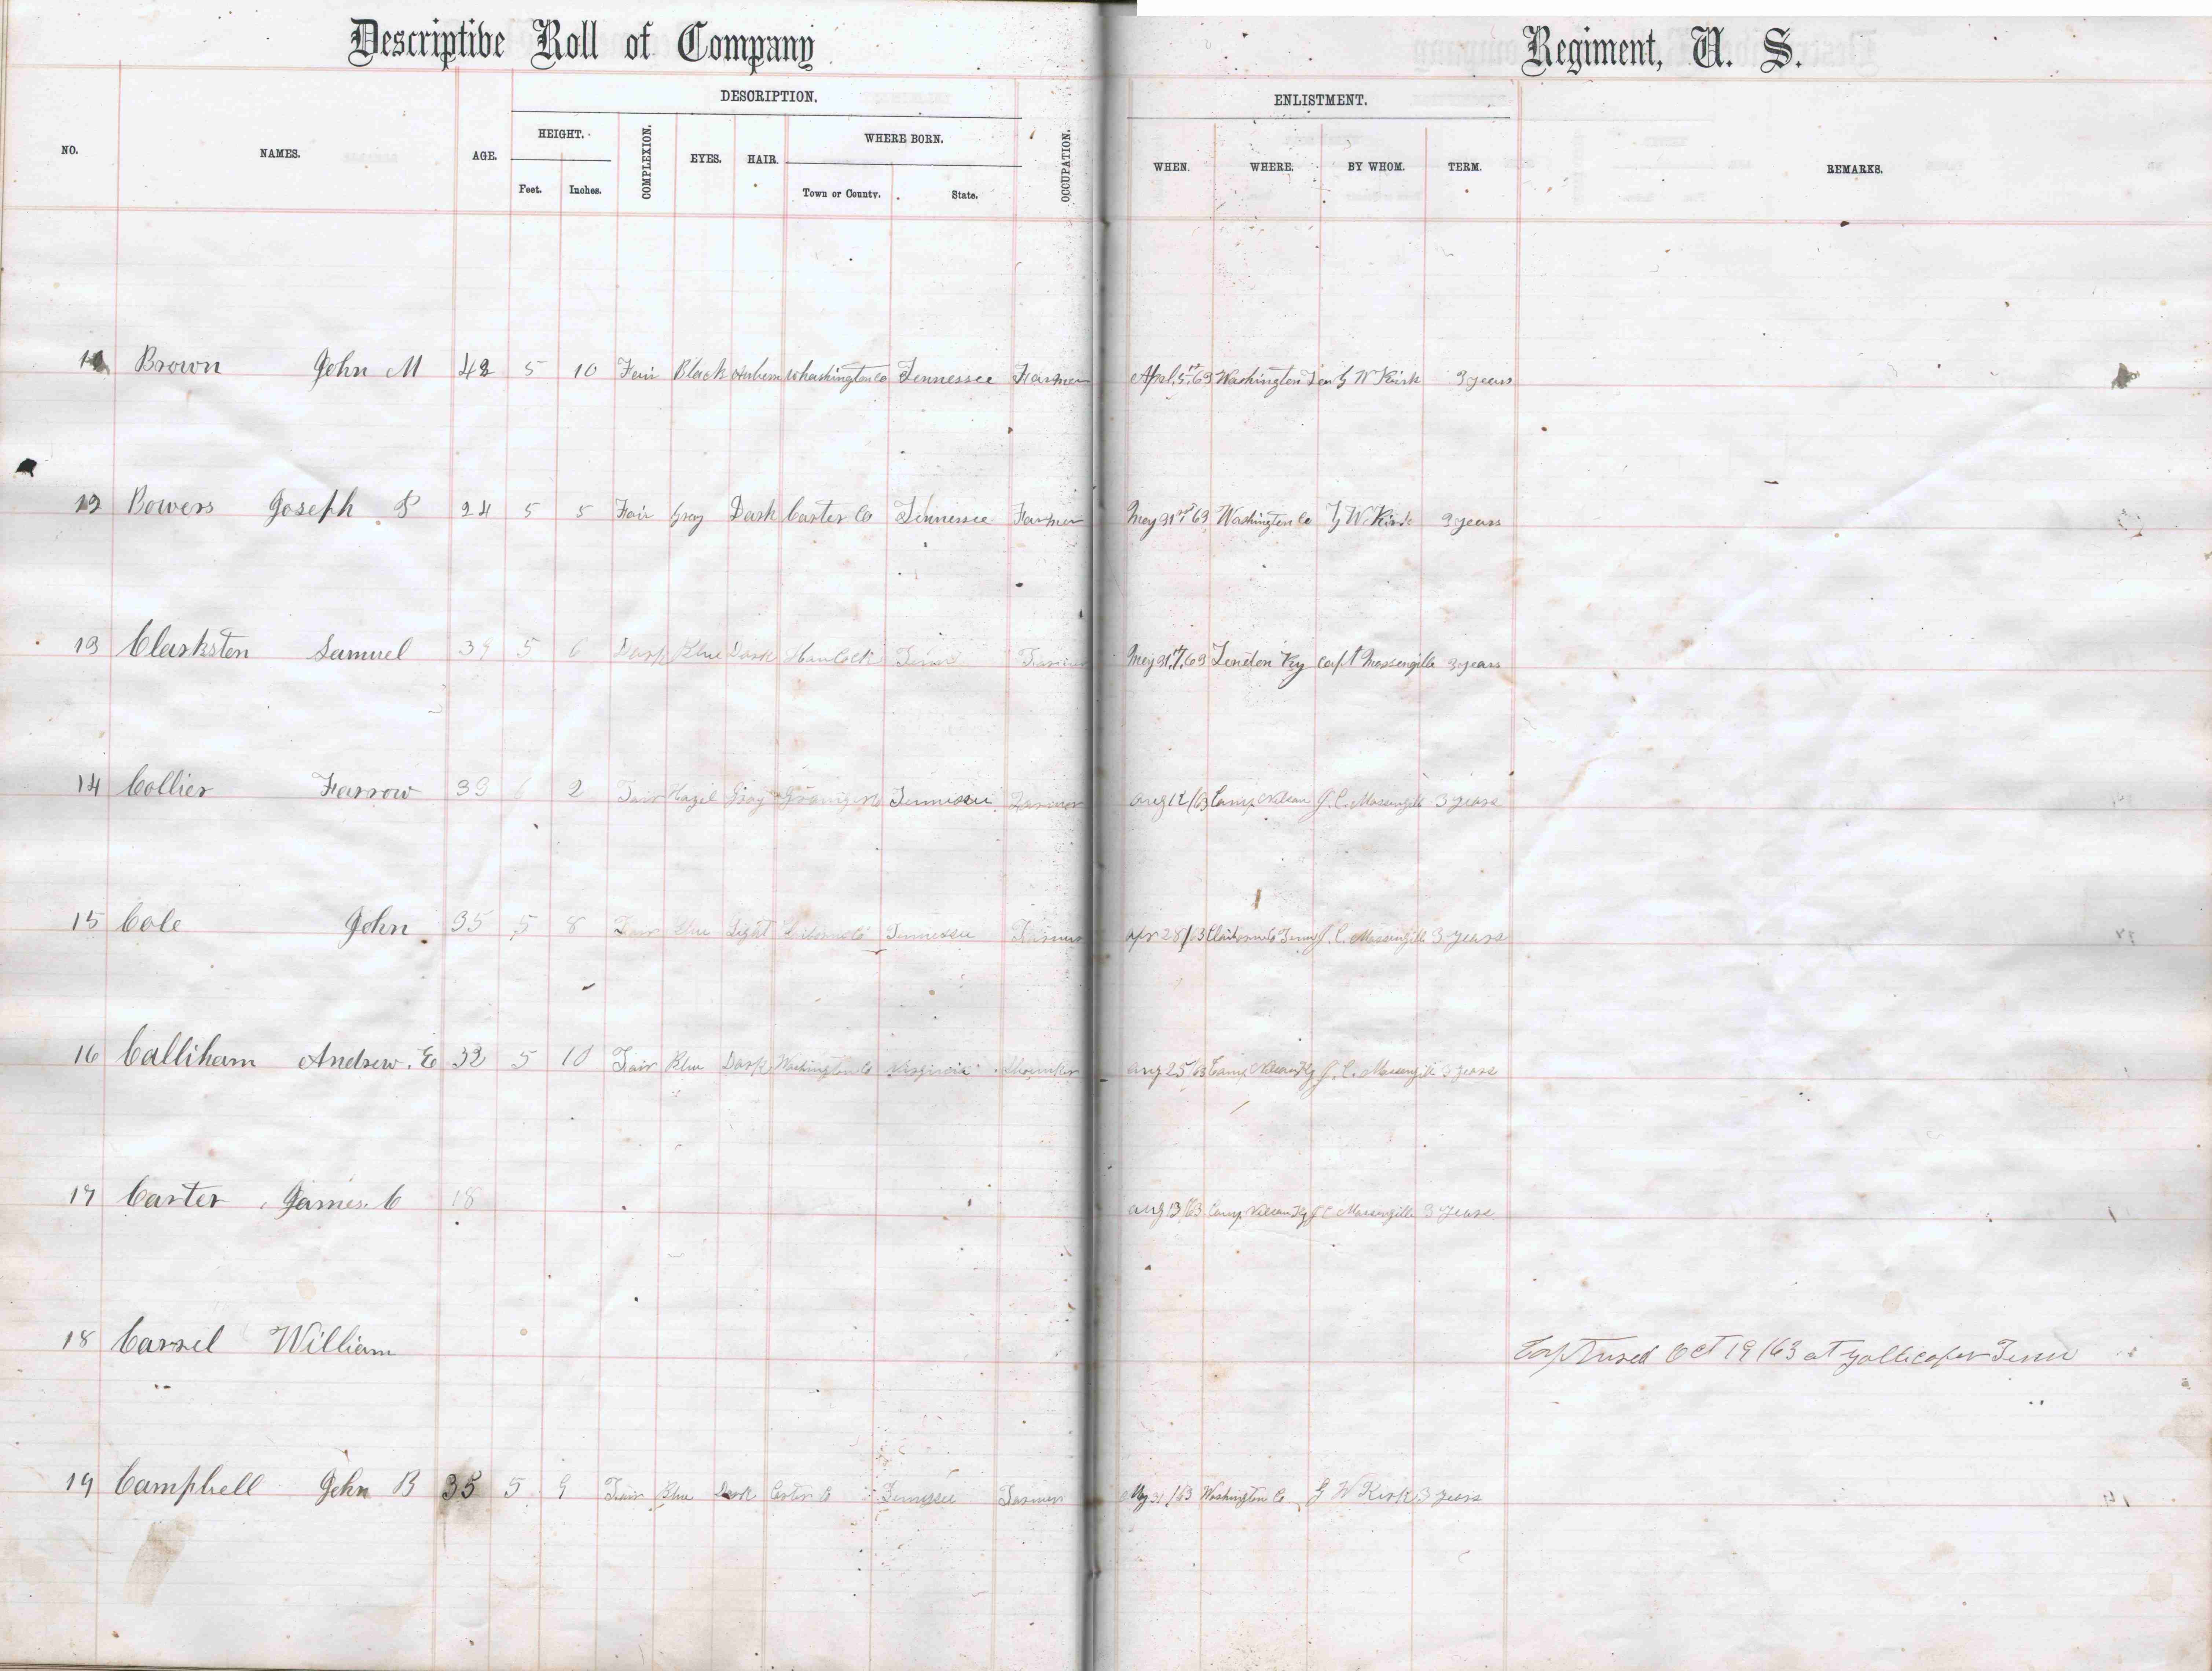 Descriptive Roll of Company Regiment, U. S.
DESCRIPTION. ENLISTMENT.
NO. NAMES. AGE. HEIGHT. COMPLEXION. EYES. HAIR. WHERE BORN. OCCUPATION. WHEN. WHERE. BY WHOM. TERM. REMARKS.
Feet. Inches. Town or County. State.
Brown John M 42 5 10 Fair Black Whashington Co Tennessee Farmer Aprl 5 63 Washington Ten G W Kirk 3 years
12 Bowers Joseph 24 5 5 Fair Gray Dark Carter Co Tennessee Farmer May 31 63 Washington Co G W Kirk 3 years
13 Clarksten Samuel 39 5 6 Dark Blue Dark Hancock Tenn Farmer May 31 63 London Ky Capt Massengille 3 years
14 Collier Farrow 39 6 2 Fair Hazil Gray Tennessee Farmer Aug 12/63 Camp Nelson J. C. Massengill 3 years
15 Cole John 35 5 8 Fair Blue Light Tennessee Farmer Apr 28/63 Claiborne Co Tenn J. C. Massengill 3 years
16 Calliham Andrew. E 32 5 10 Fair Blue Dark Washington Co Virginia Aug 25/63 Camp Nelson Ky J. C. Massengill 3 years
17 Carter James. C 18 Aug 13/63 Camp Nelson Ky J C Massengille 3 years
18 Carrel William Captured Oct 19/63 at Tenn
19 Campbell John B 35 5 9 Fair Blue Dark Carter Co Tennessee Farmer May 31/63 Washington Co G W Kirk 3 years